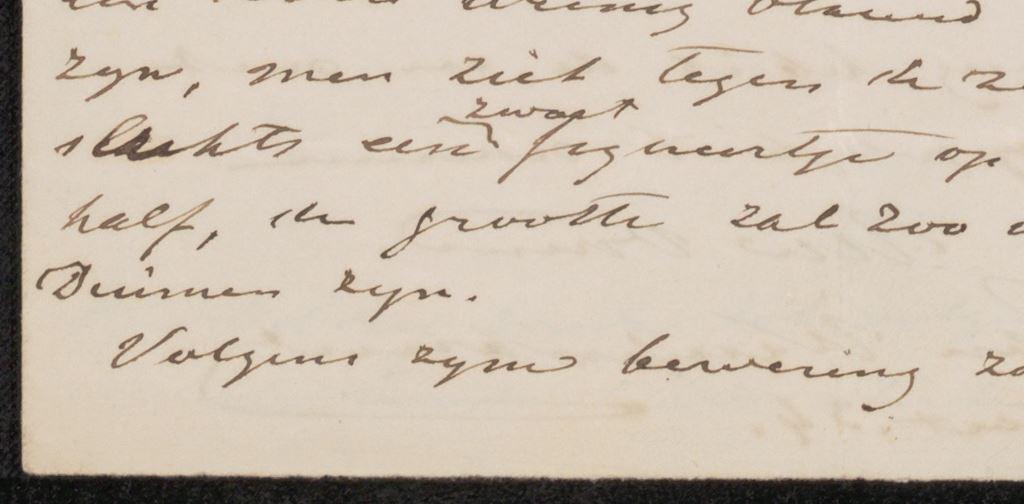 weinig blauw
zyn, men ziet tegen de
zwart
slechts een figuurtje op
half, de grootte zal zoo
Duimen zyn.
Volgens zyne bewering